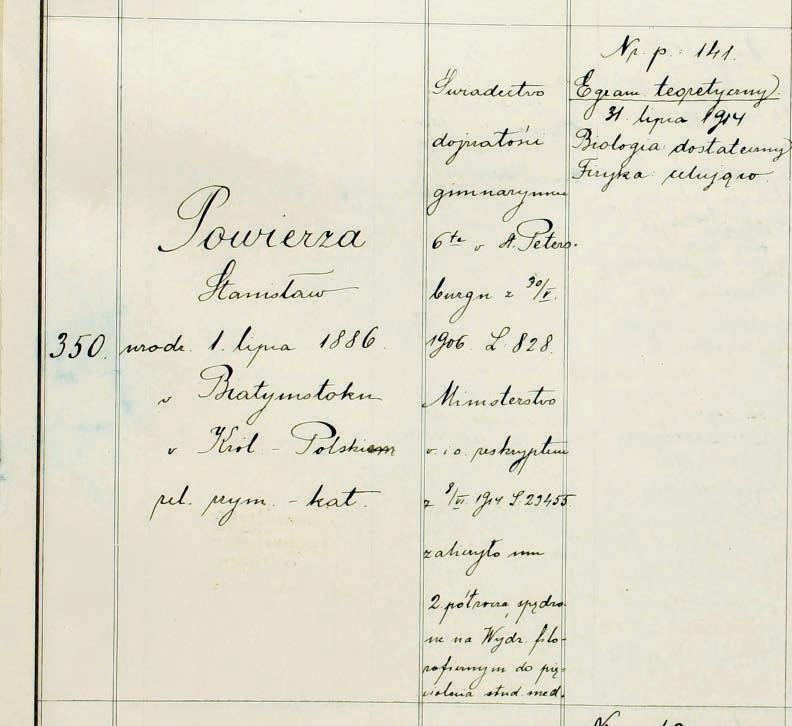 350.
Powierza
Stanisław
urodz. 1. lipca 1886
w Białymstoku
w Król. Polskiem
rel. rzym. - kat.
Świadectwo
dojrzałości
gimnazyum
6te w St. Peters-
burgu z 30/V.
1906 L. 828.
Ministerstwo
w. i o. reskryptem
z 8/VI 1914 L. 23455
zaliczyło mu
2 półrocza, spędzo-
ne na Wydz. filo-
zoficznym do pię-
ciolecia stud. med.
Nr. p. 141.
Egzam. teoretyczny)
31. lipca 1914
Biologia: dostateczny
Fizyka: celująco